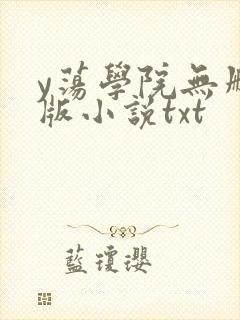 y蕩學院無刪
版小說txt
藍瓊瓔